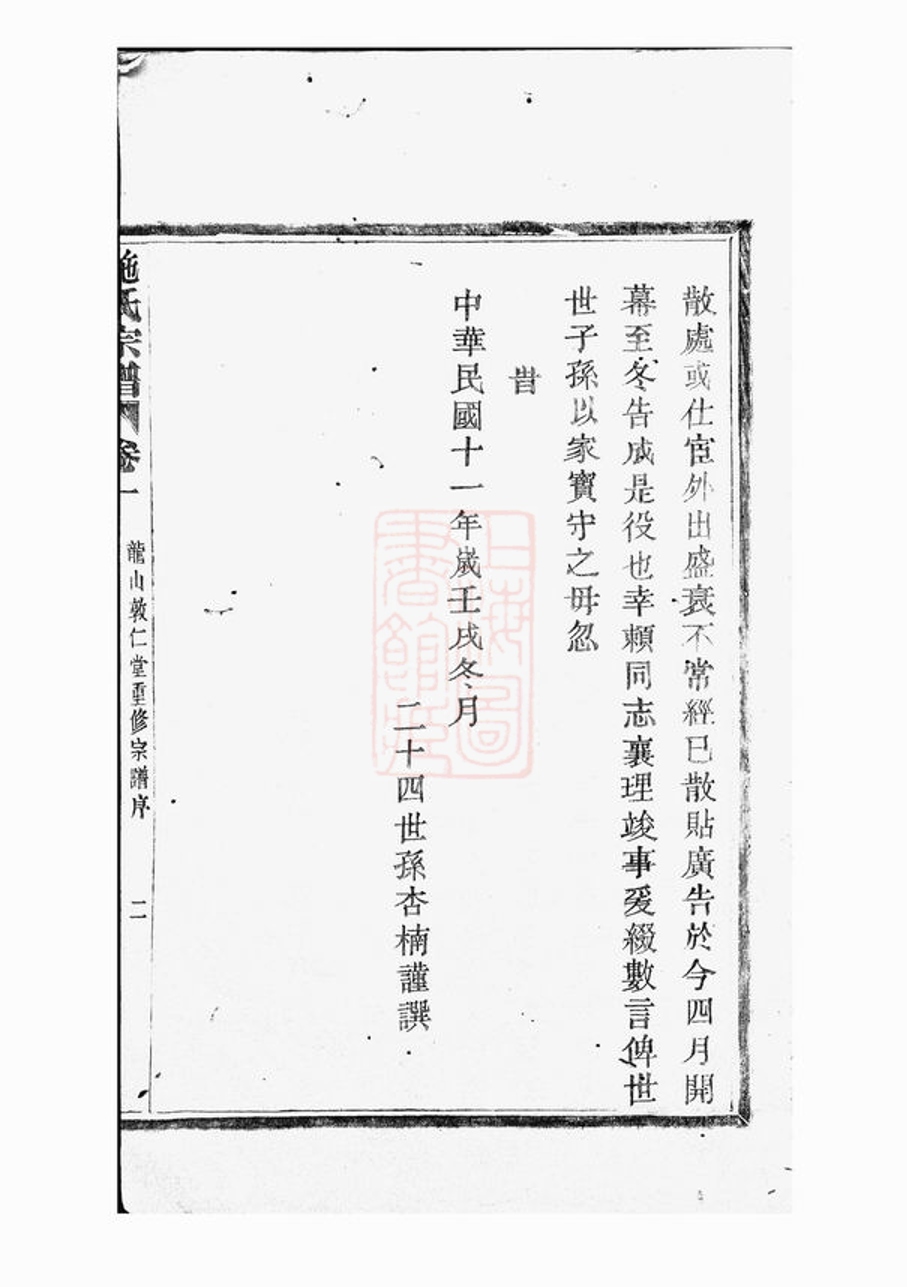 散處或仕宦外出盛衰不常經已散貼廣告於今四月開
幕至冬告成是役也幸賴同志襄理竣事爰綴數言俾世
世子孫以家寶守之毋忽
旹
中華民國十一年歲壬戌冬月
二十四世孫杏楠謹譔
施氏宗譜 卷一 龍山敦仁堂重修宗譜序 二
上海圖書館藏